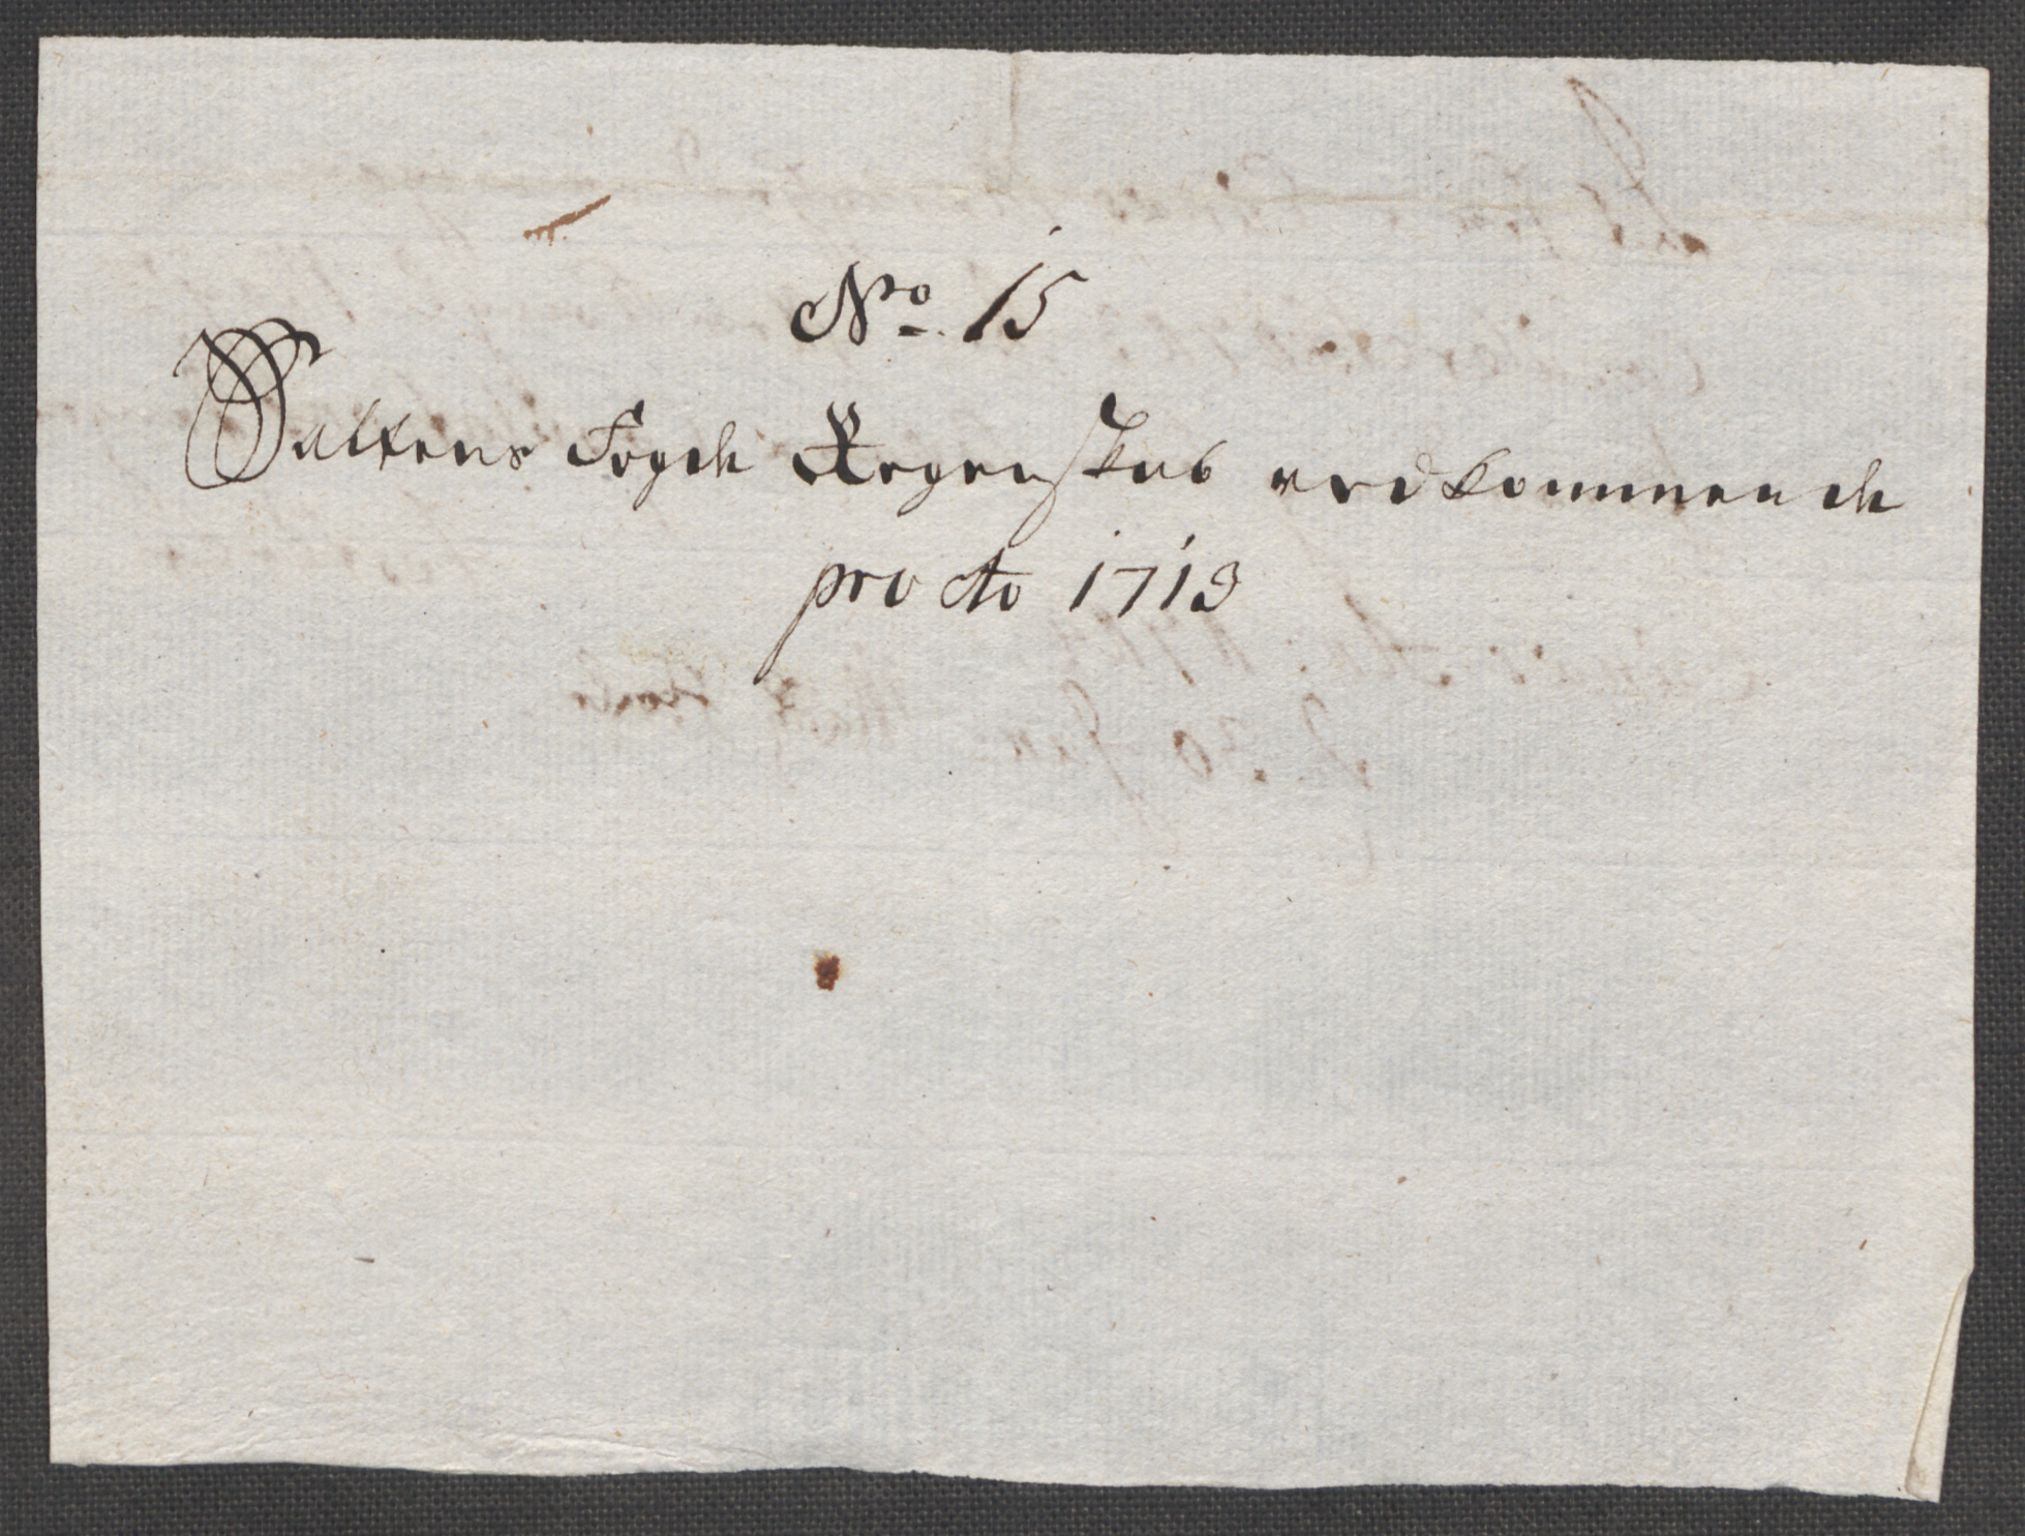 No. 15
Saltens Fogde Regenskab vedkommende
pro Ao 1713